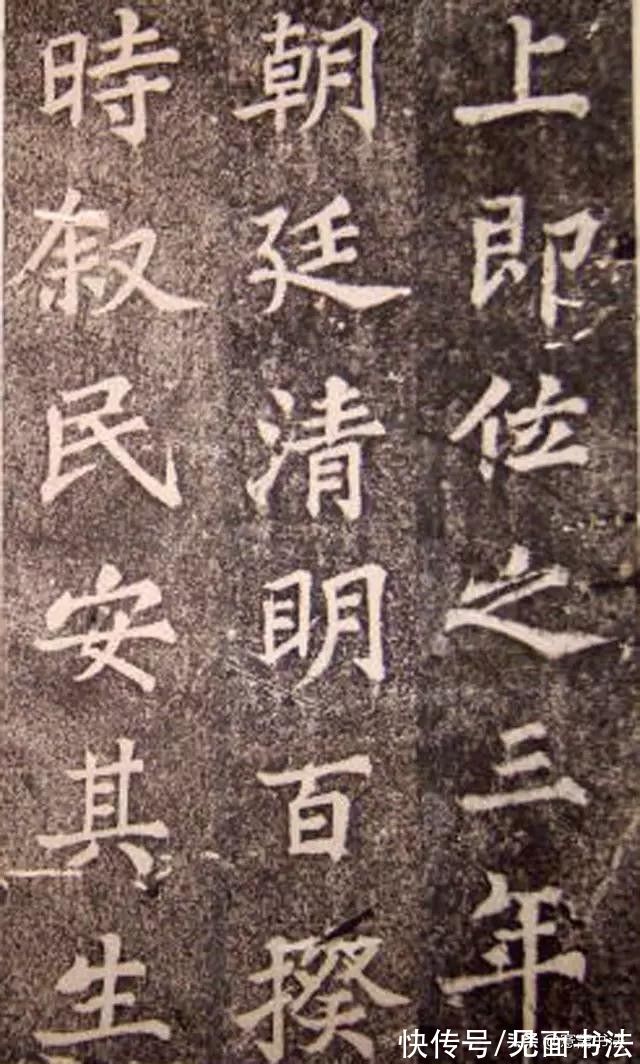 上即位之三年
朝廷清明百揆
時叙民安其生
快传号/见面书法